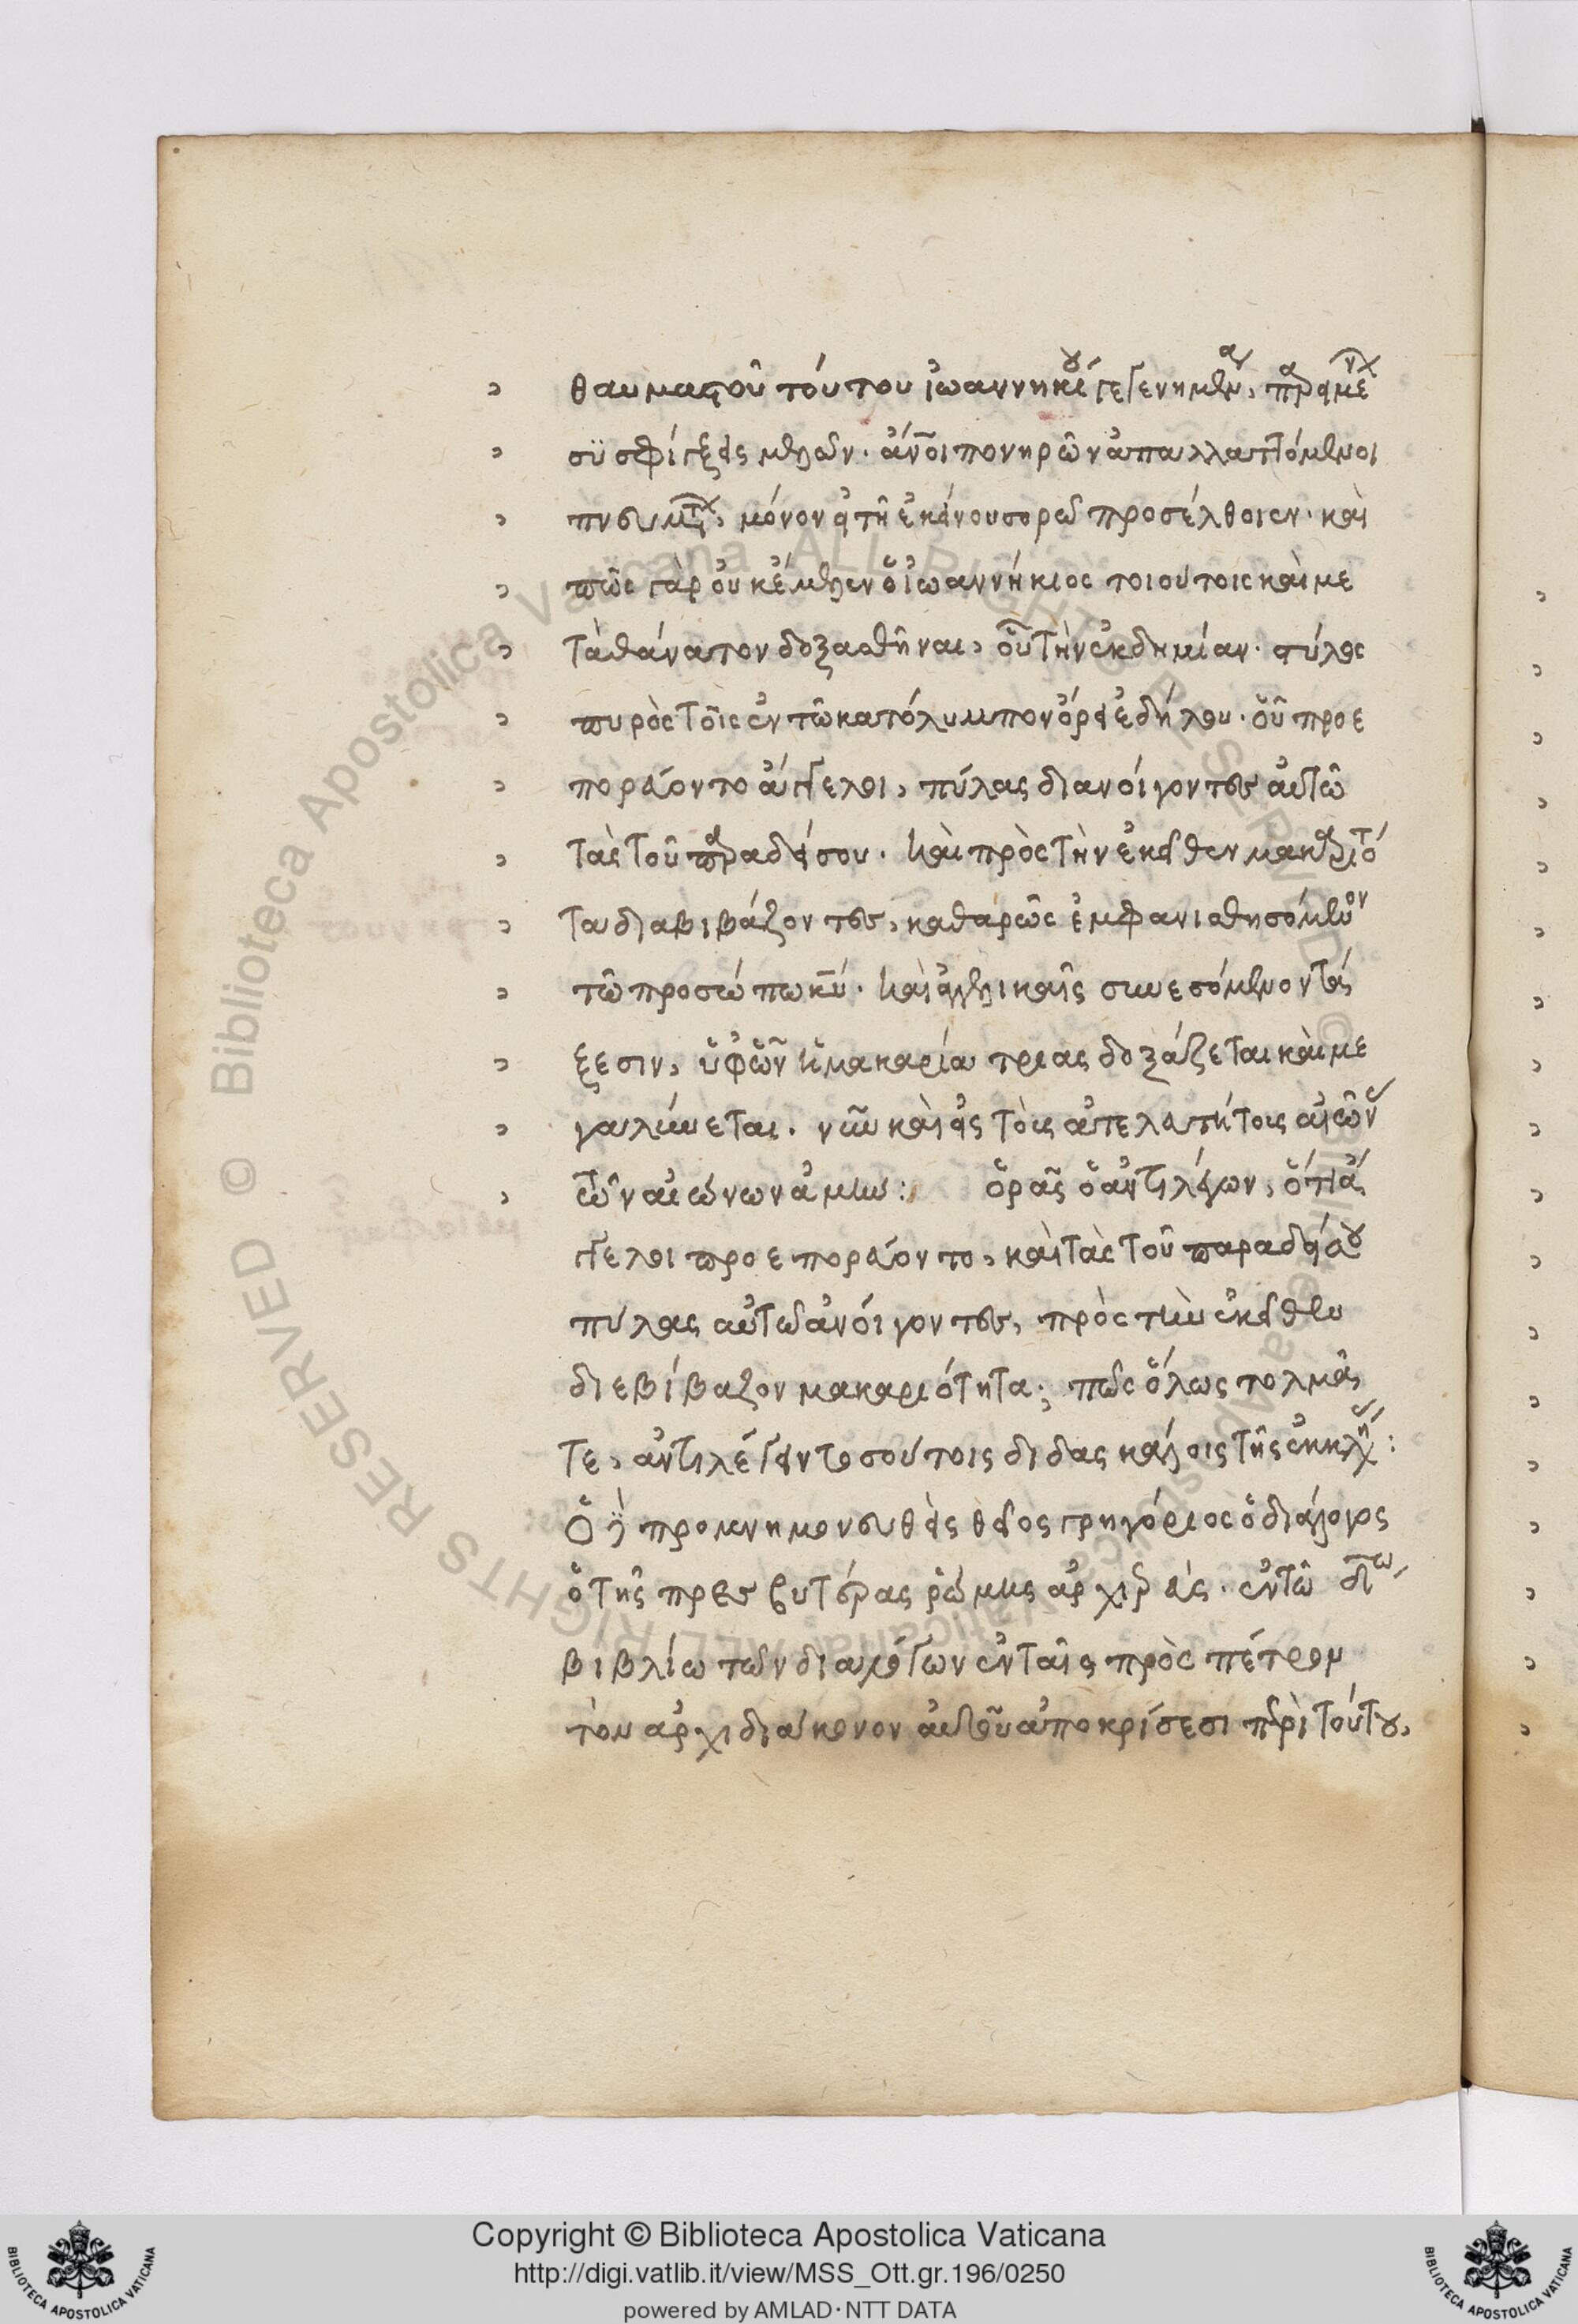 θαυμαστοῦ τούτου ἰωαννηκίου γεγενημέναν, παραμεν
συσφίγξας μέλων· ἀνοι πονηρῶν ἀπαλλαττόμενοι
πνευμάτων, μόνον εἰ τῆ ἐκείνου σορῶ προσέλθοιεν· καὶ
πῶς γὰρ οὐκ ἔμελλεν ὁ ἰωαννήκιος τοιούτοις καὶ με
τὰ θάνατον δοξασθῆναι, οὗ τὴν ἐκδημίαν· στύλος
πυρὸς τοῖς ἐν τῶ κατ' ὄλυμπον ὄρει ἐδήλου· οὗ προε
πορεύοντο ἄγγελοι, πύλας διανοίγοντες αὐτῶ
τὰς τοῦ παραδείσου· καὶ πρὸς τὴν ἐκεῖθεν μακαριό
τητα διαβιβάζοντες, καθαρῶς ἐμφανισθησόμενον
τῶ προσώπω κυ· καὶ ἀγγελικαῖς συνεσόμενον τά
ξεσιν, ὑφ' ὧν ἡ μακαρία τριὰς δοξάζεται καὶ με
γαλύνεται· νῦν καὶ εἰς τοὺς ἀτελευτήτους αἰῶνας
τῶν αἰώνων ἀμήν: ὁρᾶς ὁ ἀντιλέγων, ὅτι ἄγ
γελοι προεπορεύοντο, καὶ τὰς τοῦ παραδείσου
πύλας αὐτῶ ἀνοίγοντες, πρὸς τὴν ἐκεῖθεν
διεβίβαζον μακαριότητα; πῶς ὅλως τολμᾶ
τε, ἀντιλέγειν τοσούτοις διδασκάλοις τῆς ἐκκλησίας:
Ὁ δὲ προμνημονευθεὶς θεῖος γρηγόριος ὁ διάλογος
ὁ τῆς πρεσβυτέρας ῥώμης ἀρχιερεύς· ἐν τῶ δω
βιβλίω τῶν διαλόγων ἐν ταῖς πρὸς πέτρον
τὸν ἀρχιδιάκονον αὐτοῦ ἀποκρίσεσι περὶ τούτου,
Copyright © Biblioteca Apostolica Vaticana
http://digi.vatlib.it/view/MSS_Ott.gr.196/0250
powered by AMLAD·NTT DATA